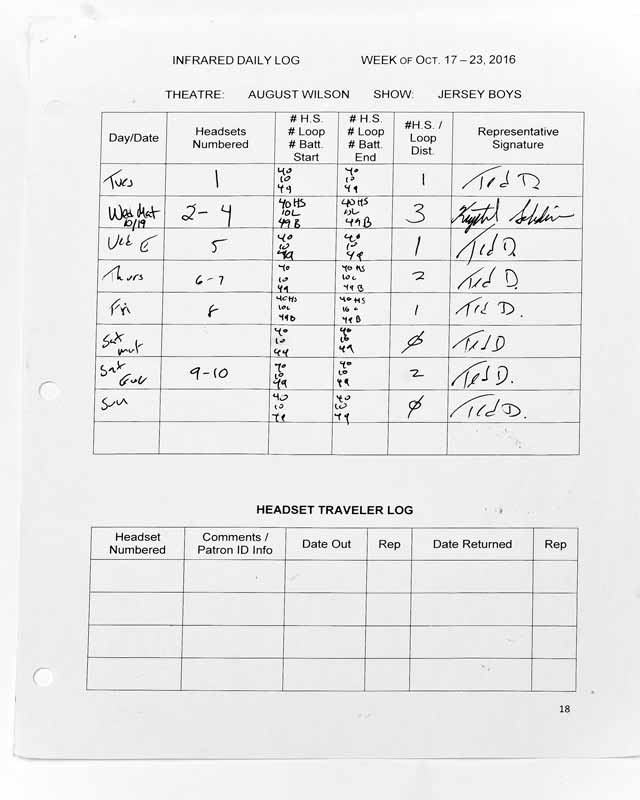 INFRARED DAILY LOG WEEK OF OCT. 17 – 23, 2016
THEATRE: AUGUST WILSON SHOW: JERSEY BOYS
Day/Date Headsets Numbered # H.S. # Loop # Batt. Start # H.S. # Loop # Batt. End #H.S. / Loop Dist. Representative Signature
Tues 1 40 10 49 40 10 49 1 Ted D.
Wed Mat 10/19 2-4 40HS 10L 49B 40HS 10L 49B 3
Wed E 5 40 10 49 40 10 49 1 Ted D.
Thurs 6-7 40 10 49 40HS 10L 49B 2 Ted D.
Fri 8 40HS 10L 49B 40HS 10L 49B 1 Ted D.
Sat mat 40 10 49 40 10 49 Ø Ted D
Sat Eve 9-10 40 10 49 40 10 49 2 Ted D.
Sun 40 10 49 40 10 49 Ø Ted D.
HEADSET TRAVELER LOG
Headset Numbered Comments / Patron ID Info Date Out Rep Date Returned Rep
18